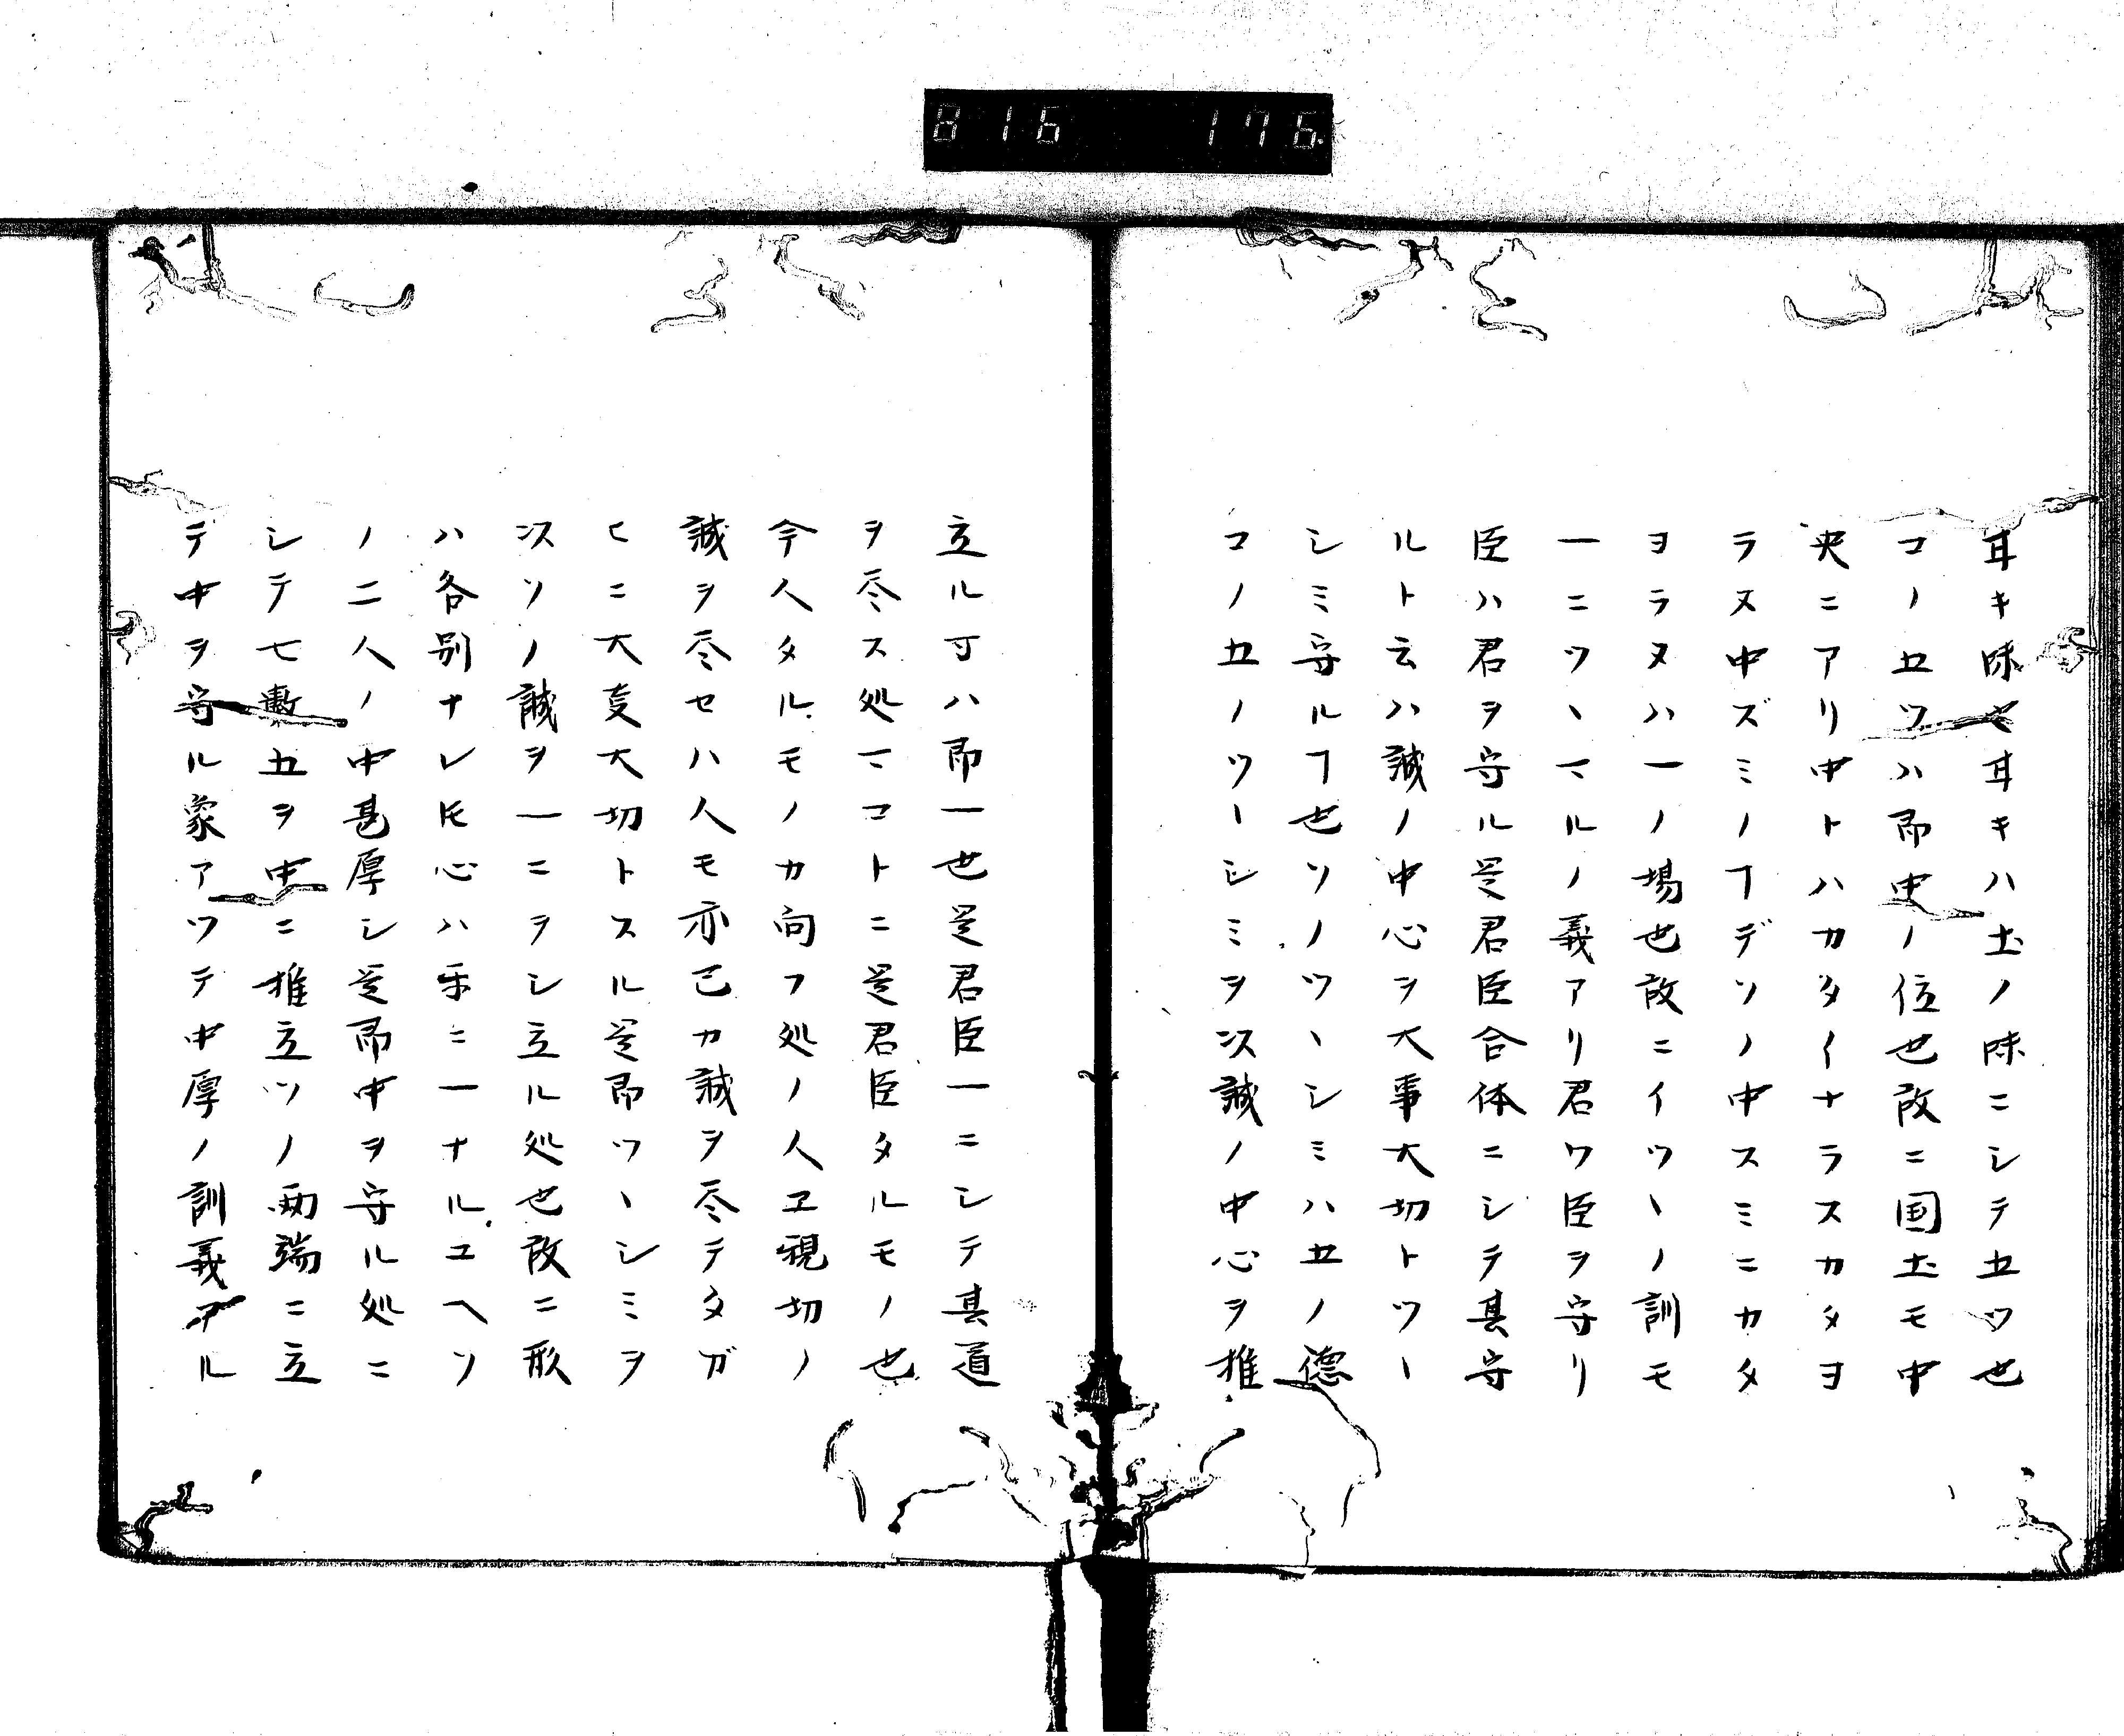 816 176.
耳キ味也耳キハ土ノ味ニシテ五ツ也
コノ五ツハ即中ノ位也故ニ国土モ中
央ニアリ中トハカタイナラスカタヨ
ラヌ中ズミノヿデソノ中スミニカタ
ヨラヌハ一ノ場也故ニイツヽノ訓モ
一ニツヽマルノ義アリ君ワ臣ヲ守リ
臣ハ君ヲ守ル是君臣合体ニシテ其守
ルト云ハ誠ノ中心ヲ大事大切トツヽ
シミ守ルヿ也ソノツヽシミハ五ノ德
コノ五ノツヽシミヲ以誠ノ中心ヲ推
立ル寸ハ即一也是君臣一ニシテ其道
ヲ尽ス処マコトニ是君臣タルモノ也
今人タルモノカ向フ処ノ人ヱ親切ノ
誠ヲ尽セハ人モ亦己カ誠ヲ尽テタガ
ヒニ大㕝大切トスル是即ツヽシミヲ
以ソノ誠ヲ一ニヲシ立ル処也故ニ形
ハ各別ナレ𪜈心ハ乐ニ一ナルユヘソ
ノ二人ノ中甚厚シ是即中ヲ守ル処ニ
シテ七數五ヲ中ニ推立ツノ兩端ニ立
テ中ヲ守ル象アツテ中厚ノ訓義アル